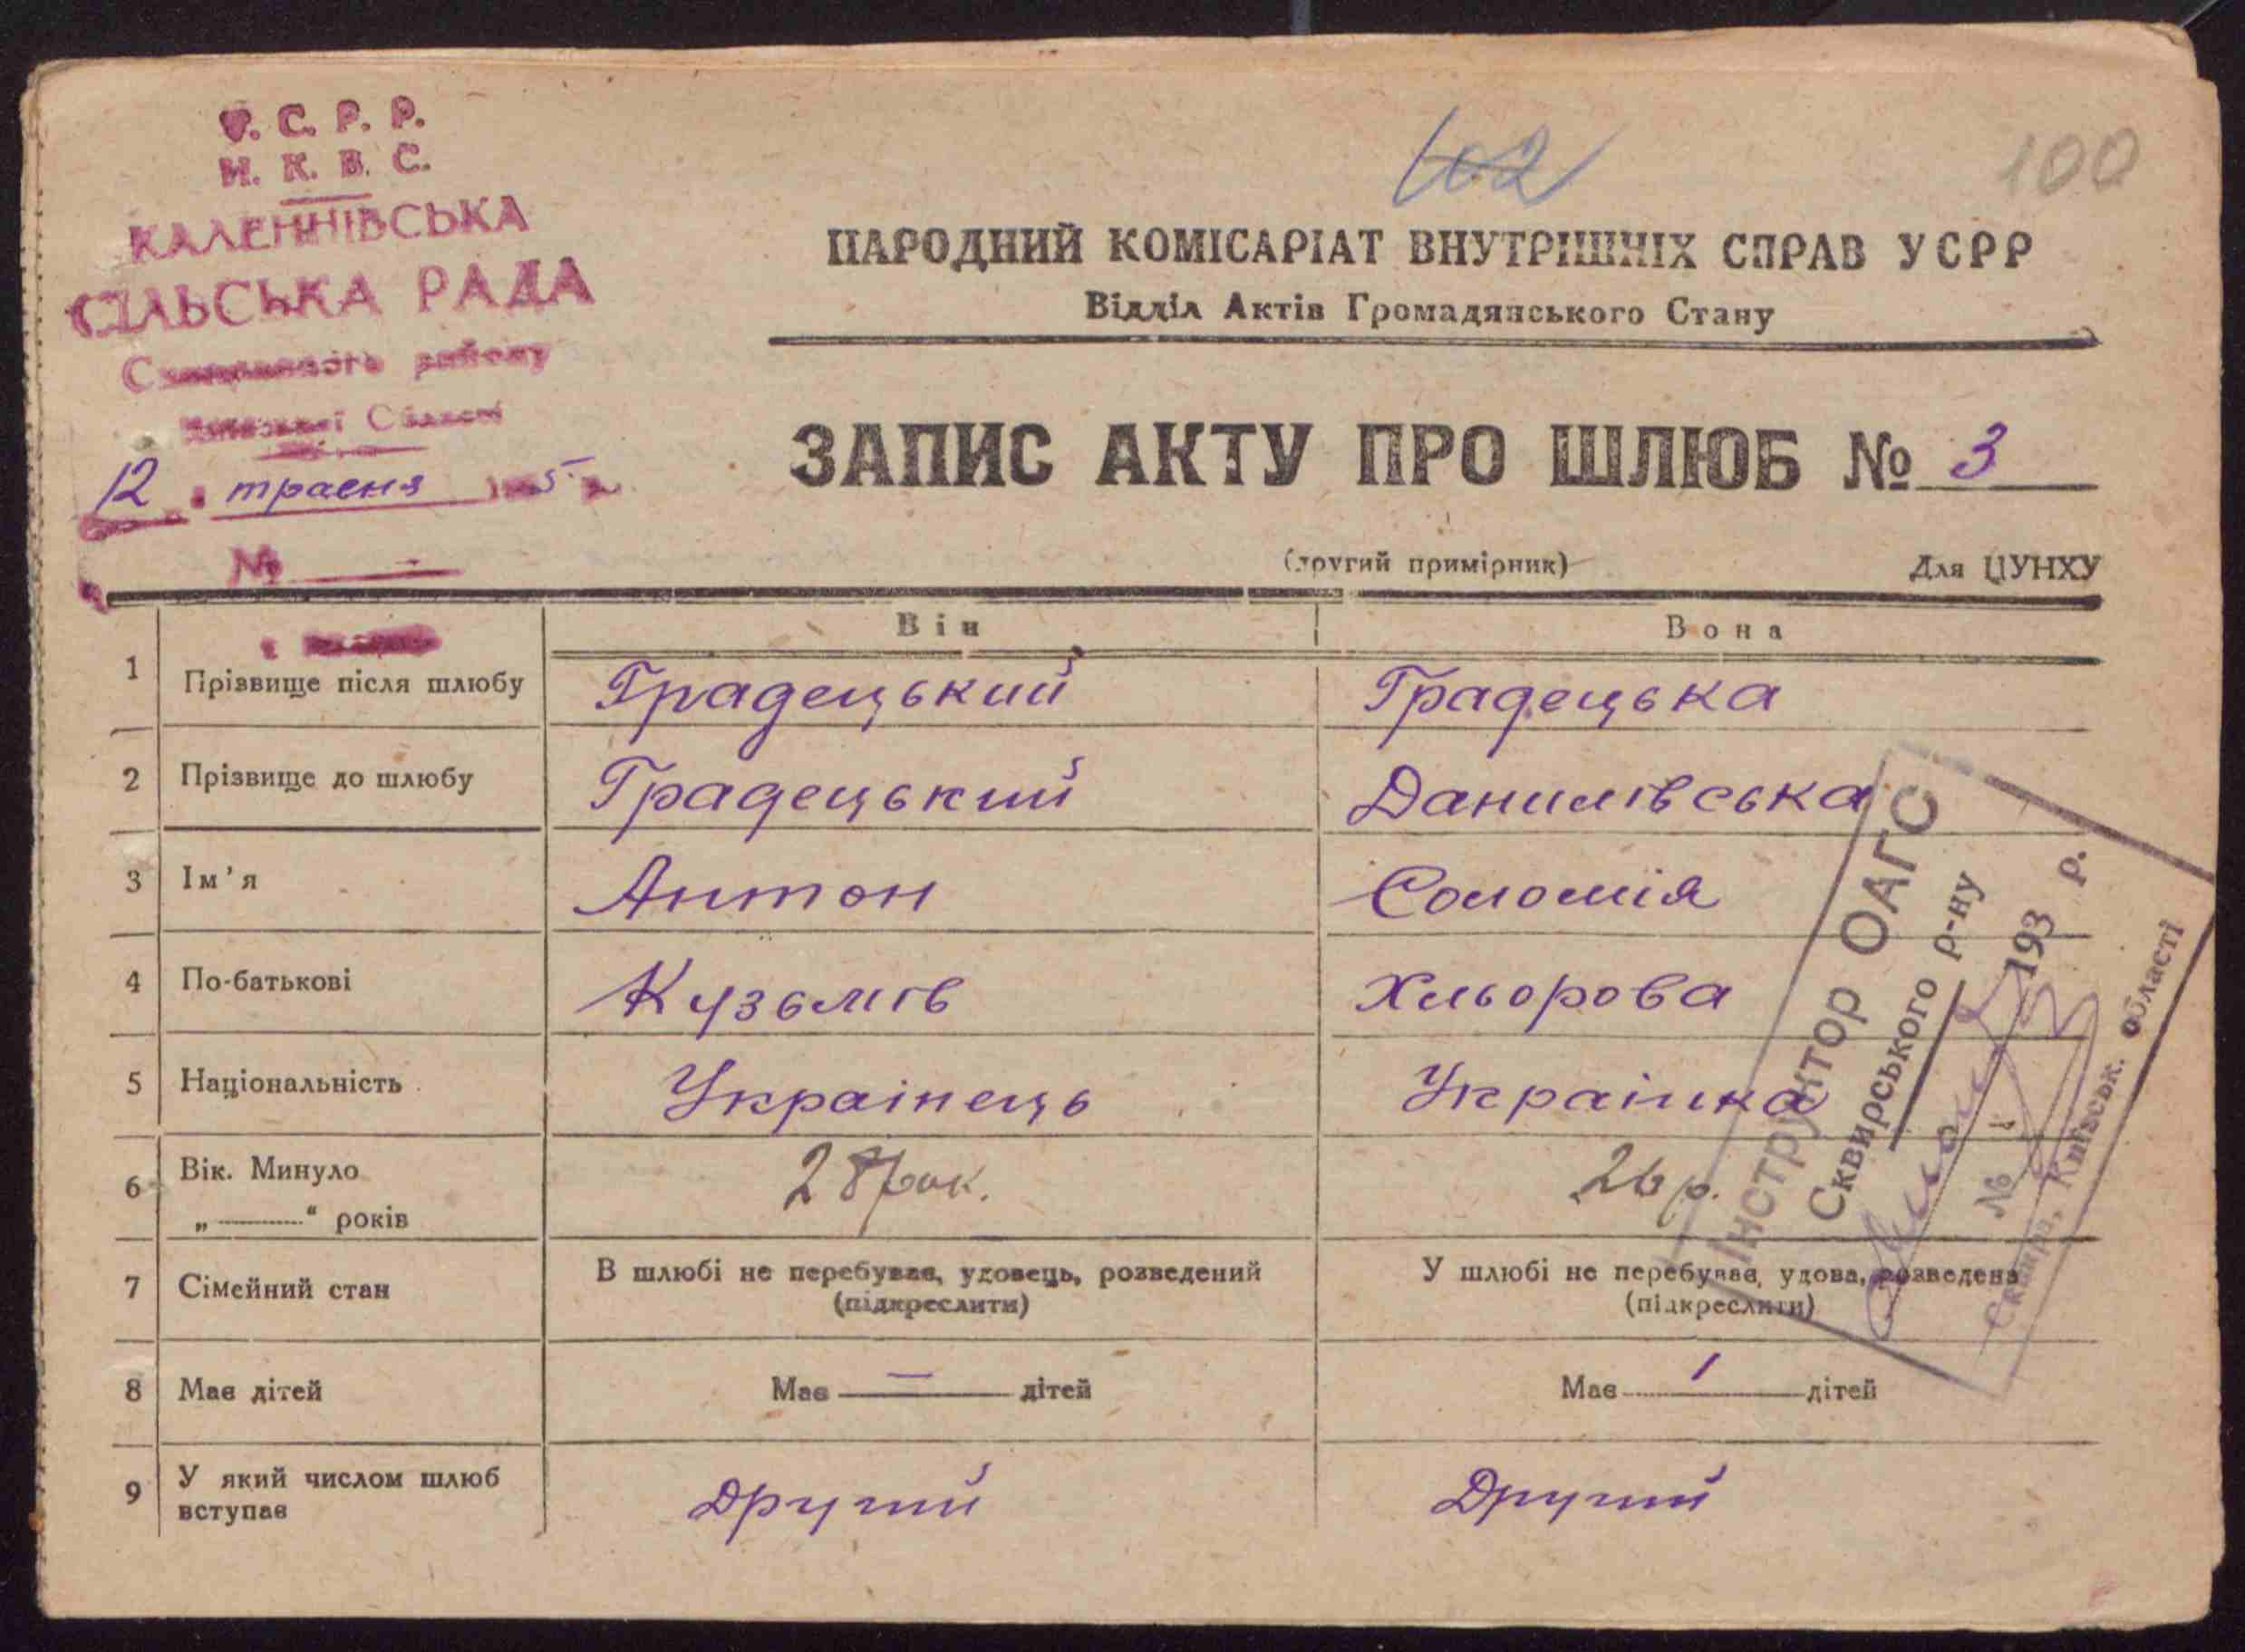 У. С. Р. Р.
Н. К. В. С.
КАЛЕННІВСЬКА
СІЛЬСЬКА РАДА
Сквирського району
Київської Області
12 травня 5
№
102
100
НАРОДНИЙ КОМІСАРІАТ ВНУТРІШНІХ СПРАВ УСРР
Відділ Актів Громадянського Стану
ЗАПИС АКТУ ПРО ШЛЮБ № 3
(другий примірник) Для ЦУНХУ
Він Вона
1 Прізвище після шлюбу Градецький Градецька
2 Прізвище до шлюбу Градецький Данилівська
3 Ім'я Антон Соломія
4 По-батькові Кузьмів Хльорова
5 Національність Украінець Украінка
6 Вік. Минуло 28 рок. 26 р.
„ “ років
7 Сімейний стан В шлюбі не перебував, удовець, розведений У шлюбі не перебуває, удова, розведена
(підкреслити) (підкреслити)
8 Має дітей Має — дітей Має 1 дітей
9 У який числом шлюб Другий Другий
вступає
Інструктор ОАГС
Сквирського р-ну
193 р.
№
Сквира, Київськ. області